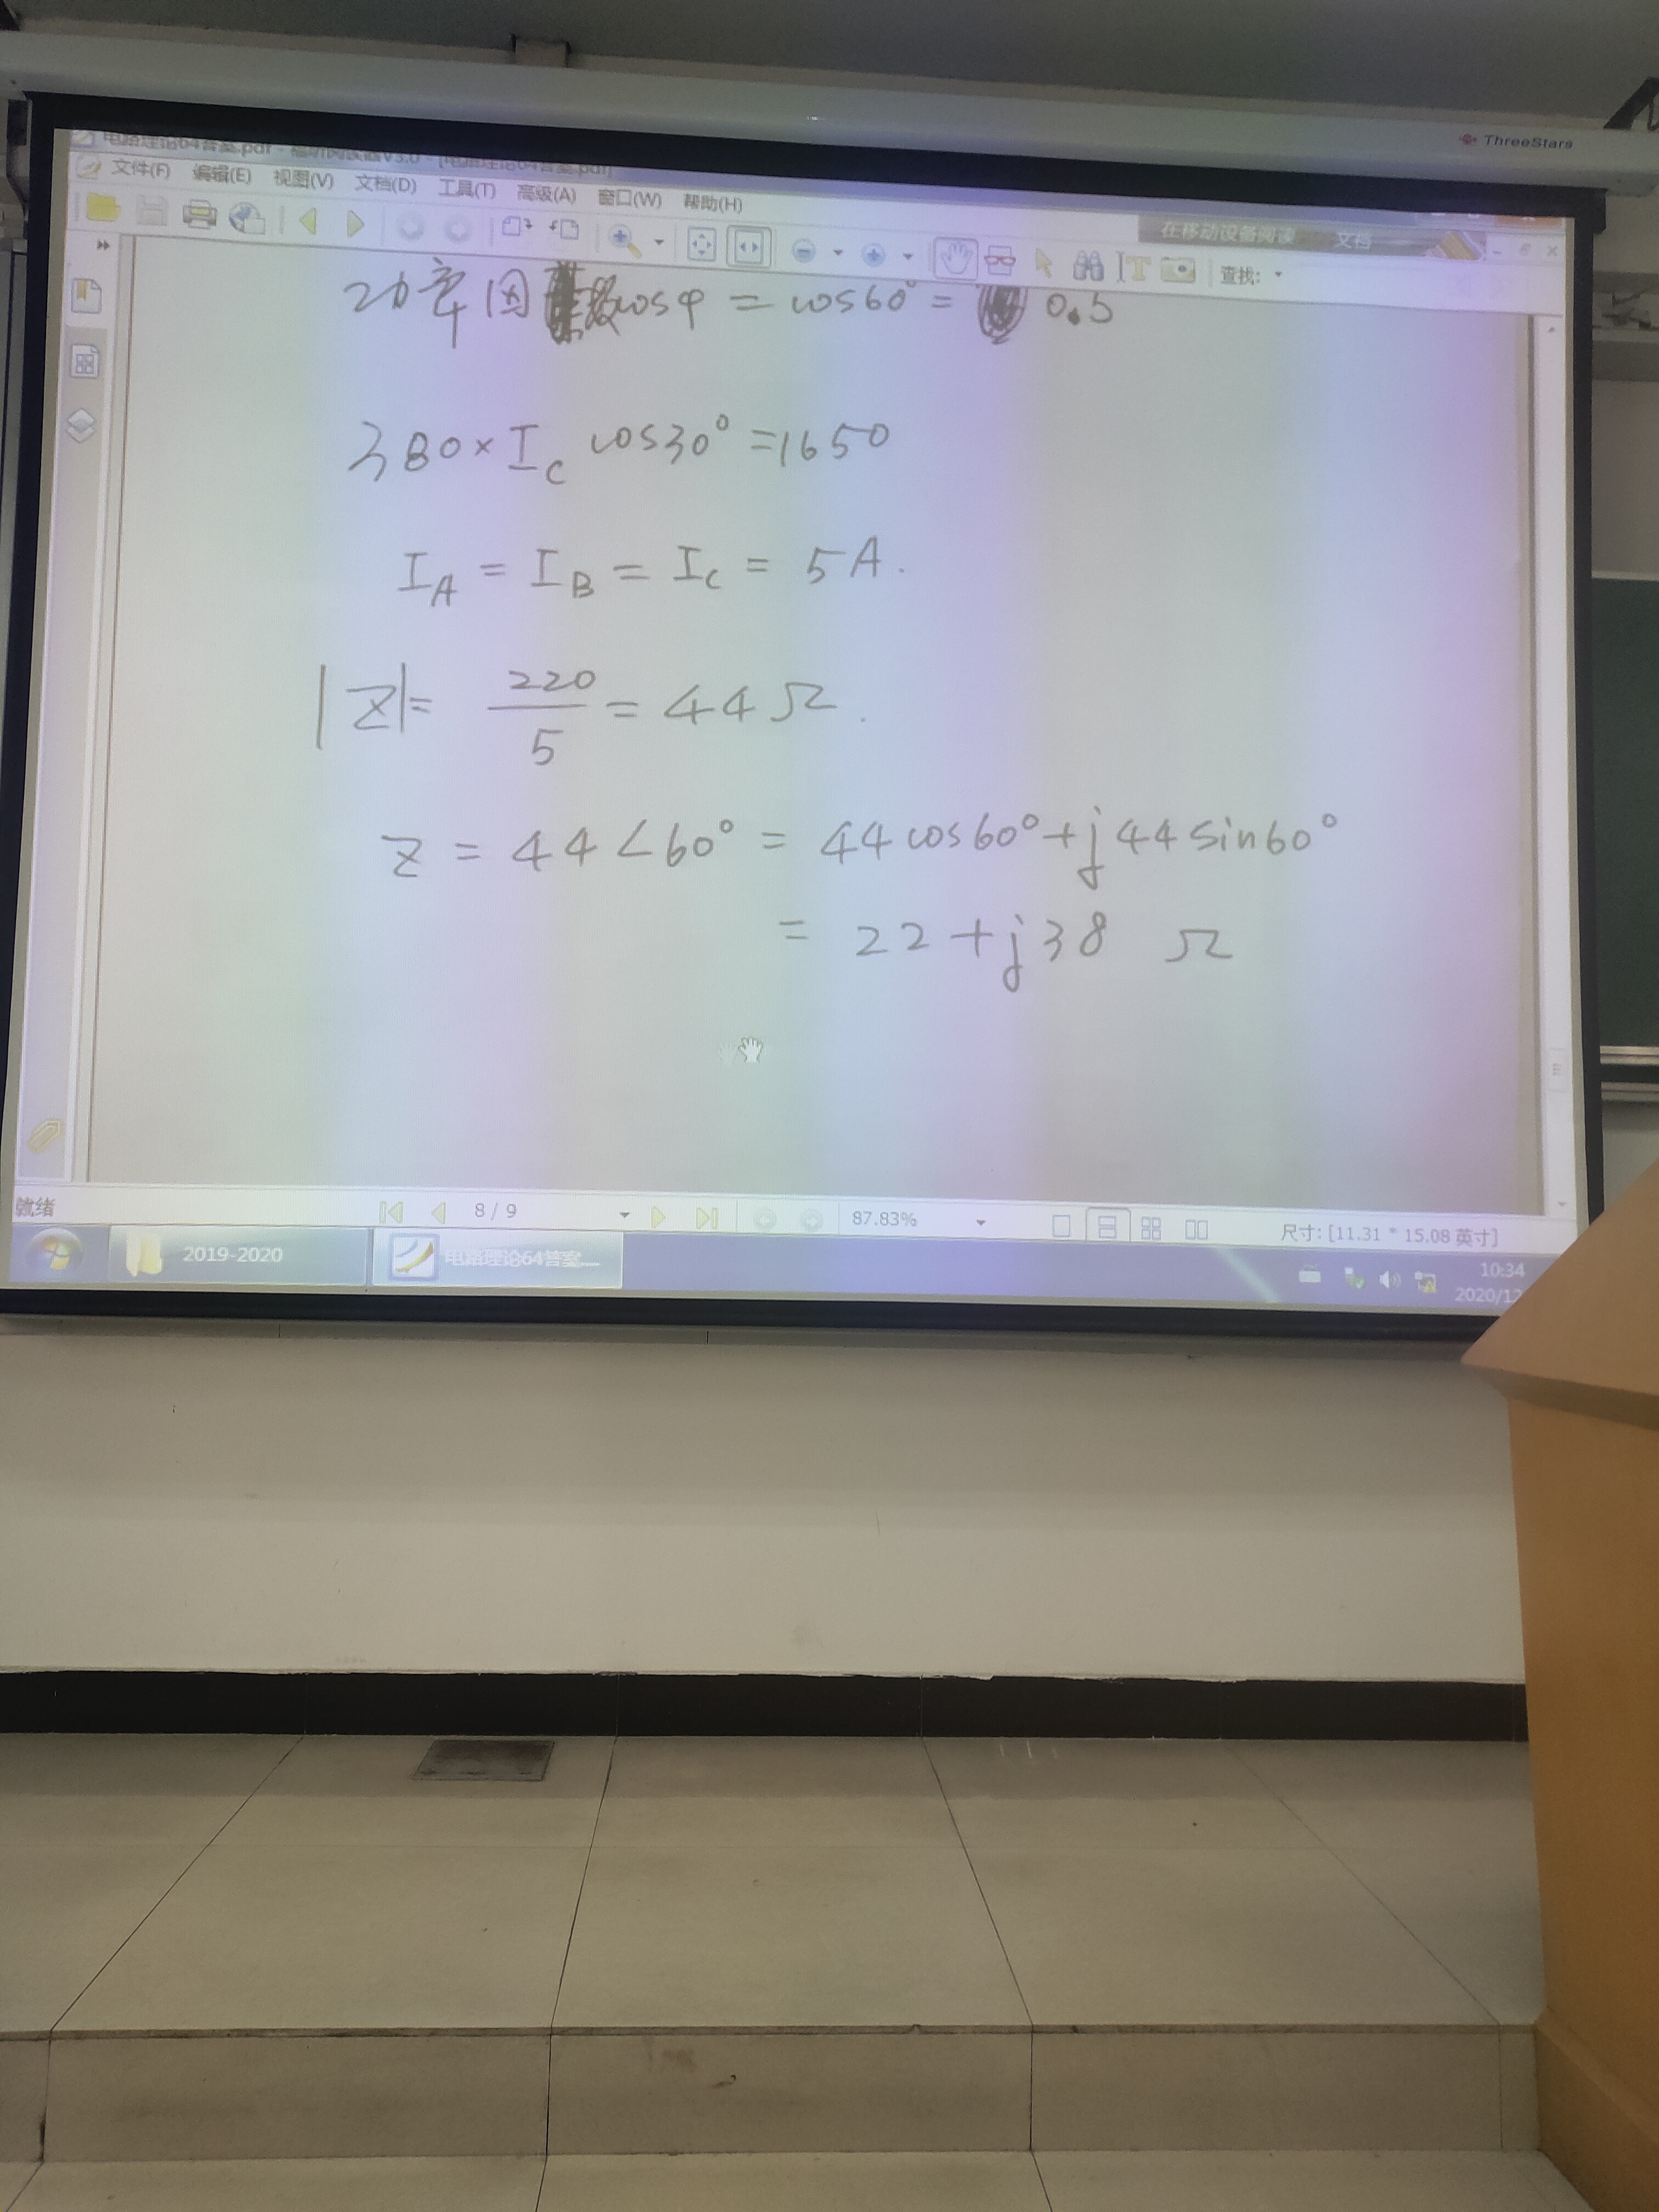 ThreeStars
电路理论64答案.pdf - 福昕阅读器V3.0 - [电路理论64答案.pdf]
文件(F) 编辑(E) 视图(V) 文档(D) 工具(T) 高级(A) 窗口(W) 帮助(H)
在移动设备阅读 文档
查找:
功率因数cosφ = cos60° = 0.5
380×I_C cos30° =1650
I_A = I_B = I_C = 5A.
|Z|= 220/5 = 44Ω.
Z = 44∠60° = 44cos60°+j44sin60°
= 22+j38 Ω
就绪 8 / 9 87.83% 尺寸: [11.31 * 15.08 英寸]
2019-2020 电路理论64答案.... 10:34
2020/12